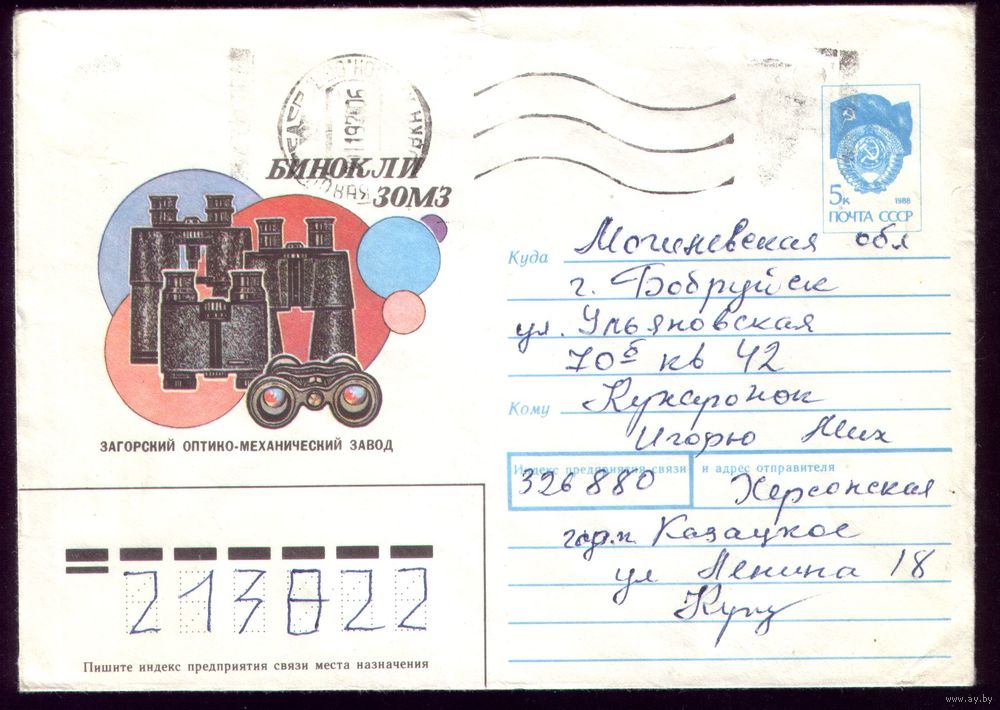 БИНОКЛИ
ЗОМЗ
ЗАГОРСКИЙ ОПТИКО-МЕХАНИЧЕСКИЙ ЗАВОД
5к 1988
ПОЧТА СССР
Куда Могилевская обл
г. Бобруйск
ул. Ульяновская
70б кв 42
Кому
Игорю Мих
Индекс предприятия связи и адрес отправителя
326880 Херсонская
Казацкое
ул Ленина 18
213822
Пишите индекс предприятия связи места назначения
www.ay.by